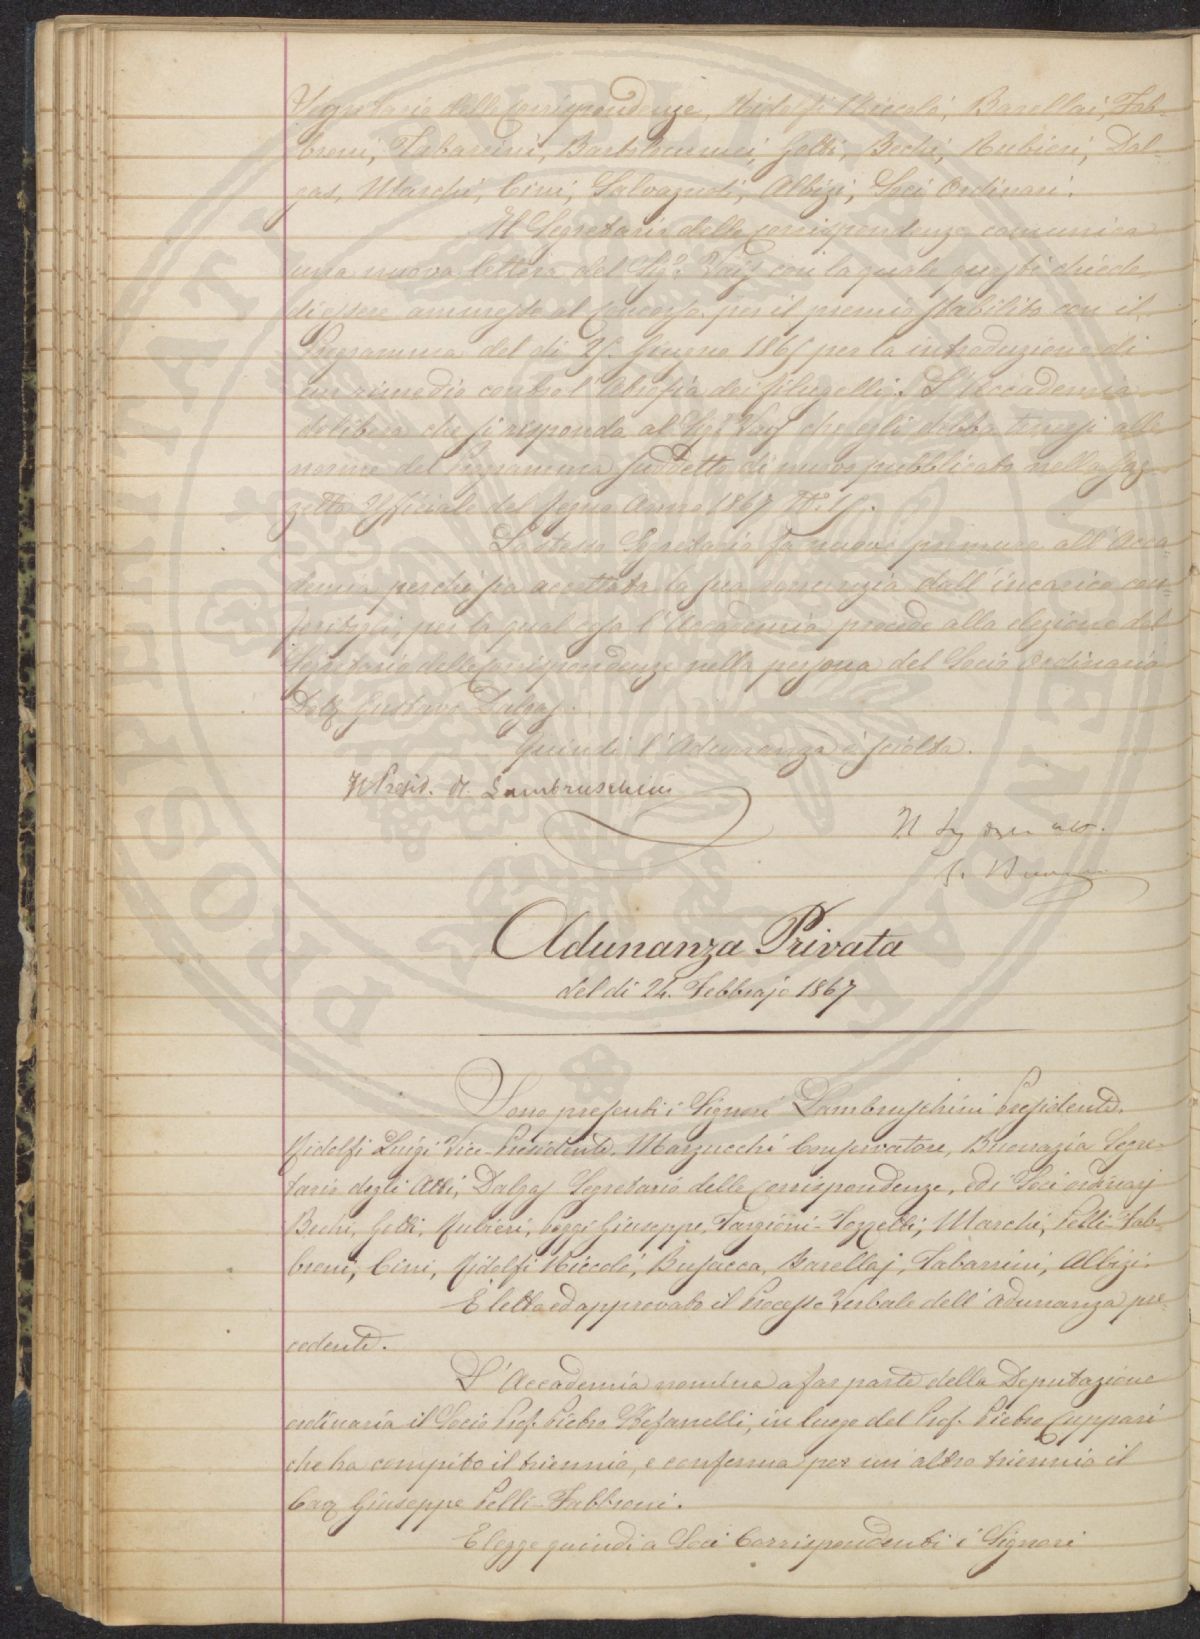 Segretario delle Corrispondenze, Ridolfi Niccolò, Barellai, Fab-
broni, Tabarrini, Bartolommei, Gotti, Bechi, Rubieri, Dal-
gas, Marchi, Cini, Salvagnoli, Albizi, Soci Ordinari.
Il Segretario delle corrispondenze comunica
una nuova lettera del Sigr. con la quale questi chiede
di essere ammesso al Concorso per il premio stabilito con il
Programma del dì Giugno 186 per la introduzione di
un rimedio contro l'Atrofia dei filugelli. L'Accademia
delibera che si risponda al Sigr. che egli debba tenersi alle
norme del Programma suddetto di nuovo pubblicato nella Gaz-
zetta Ufficiale del Regno Anno 1867 N.
Lo stesso Segretario fa nuove premure all'Acca-
demia perchè sia accettata la sua renunzia dall'incarico con-
feritogli, per la qual cosa l'Accademia procede alla elezione del
Segretario delle Corrispondenze nella persona del Socio Ordinario
Dott. Gustavo Dalgas.
Quindi l'Adunanza è sciolta.
Il Presid. R. Lambruschini
Il Seg degli atti.
Adunanza Privata
del dì 24. Febbrajo 1867
Sono presenti i Signori Lambruschini Presidente.
Ridolfi Luigi Vice-Presidente, Marzucchi Conservatore, Buonazia Segre-
tario degli Atti, Dalgas Segretario delle Corrispondenze, ed i Soci ordinarj
Bechi, Gotti, Rubieri, Poggi Giuseppe, Targioni-Tozzetti, Marchi, Pelli-Fab-
broni, Cini, Ridolfi Niccolò, Busacca, Barellaj, Tabarrini, Albizi.
È letto ed approvato il Processo Verbale dell'adunanza pre-
cedente.
L'Accademia nomina a far parte della Deputazione
ordinaria il Socio Prof. Pietro Stefanelli, in luogo del Prof. Pietro Cuppari
che ha compito il triennio, e conferma per un altro triennio il
Cav. Giuseppe Pelli-Fabbroni.
Elegge quindi a Soci Corrispondenti i Signori
PROSPERITATI PUBLICAE AUGENDAE